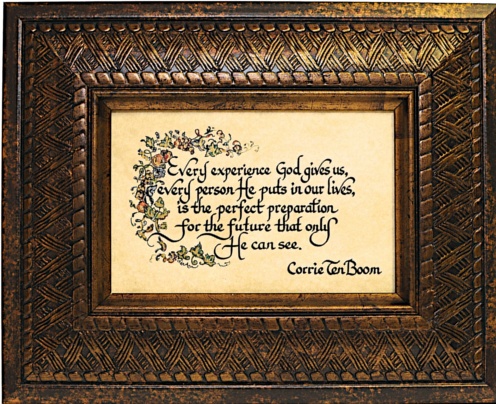 Every experience God gives us,
every person He puts in our lives,
is the perfect preparation
for the future that only
He can see.
Corrie Ten Boom